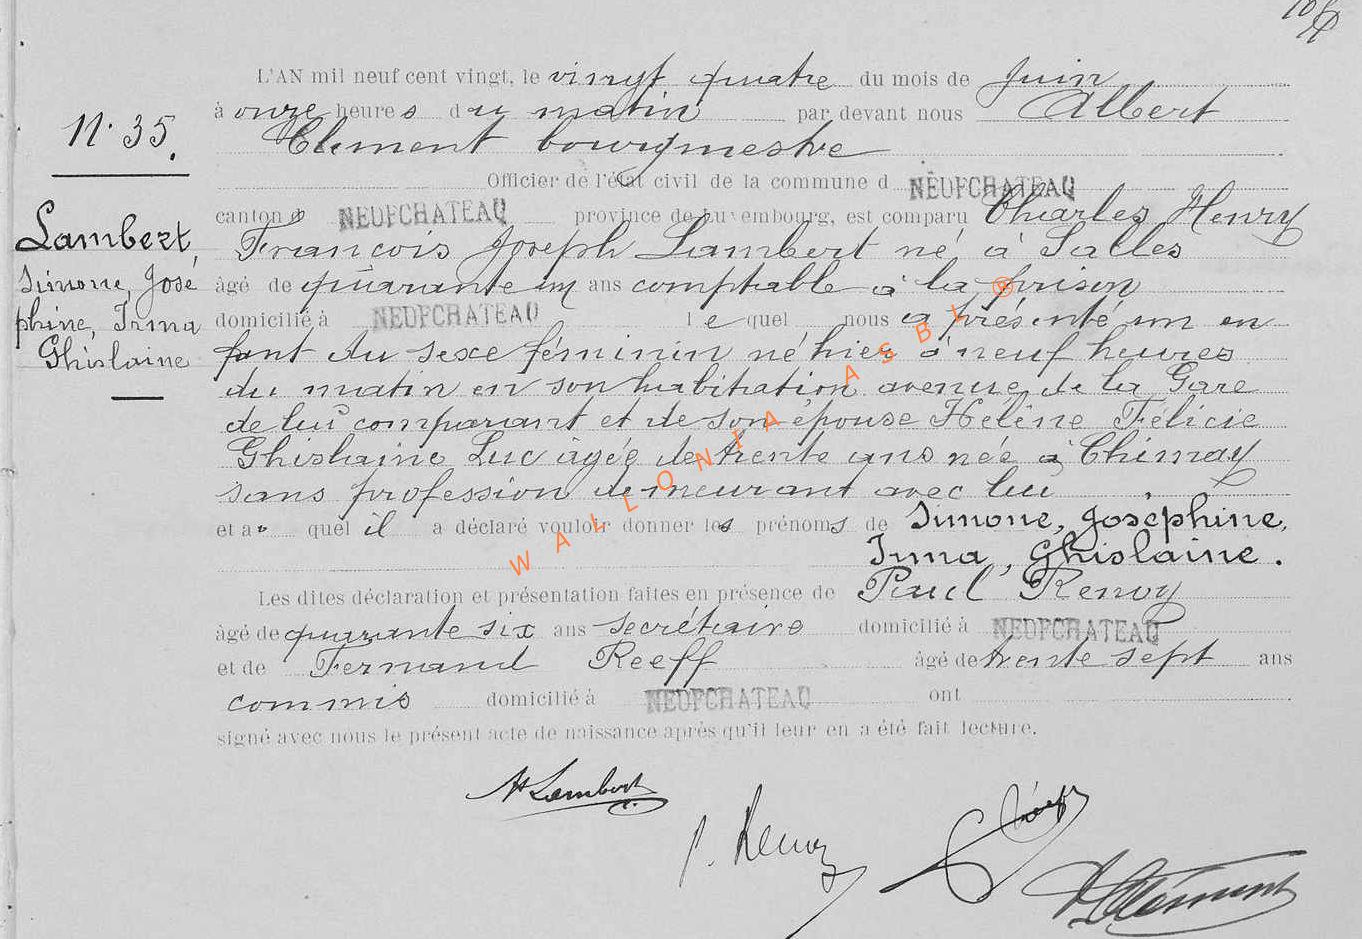 L'AN mil neuf cent vingt, le vingt quatre du mois de Juin
à onze heures du matin par devant nous Albert
N° 35.
Clement bourgmestre
Officier de l'état civil de la commune d NEUFCHATEAU
canton d NEUFCHATEAU province de Luxembourg, est comparu Charles Henry
Lambert,
François Joseph Lambert né à Salles
Simone, José
âgé de quarante un ans comptable à la prison
phine, Irma
domicilié à NEUFCHATEAU lequel nous a présenté un en
Ghislaine
fant du sexe féminin né hier à neuf heures
du matin en son habitation avenue de la Gare
de lui comparant et de son épouse Hélène Félicie
Ghislaine Luc âgée de trente ans née à Chimay
sans profession demeurant avec lui
et a quel il a déclaré vouloir donner les prénoms de Simone, Josephine,
Irma, Ghislaine.
Les dites déclaration et présentation faites en présence de Paul Renoy
âgé de quarante six ans secrétaire domicilié à NEUFCHATEAU
et de Fernand Reeff âgé de trente sept ans
commis domicilié à NEUFCHATEAU ont
signé avec nous le présent acte de naissance après qu'il leur en a été fait lecture.
H Lambert
P. Renoy
A Clément
WALLONIA ASBL ®